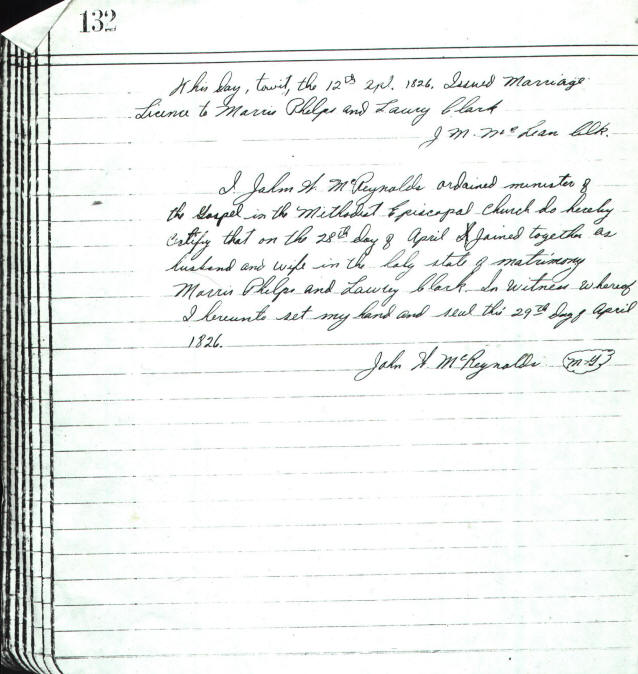 132
This day, towit, the 12th Apl. 1826. Issued Marriage
Licence to Morris Phelps and Laury Clark
J M. Mc Lean Clk.
I John H. McReynolds ordained minister of
the Gospel in the Methodist Episcopal Church do hereby
Certify that on the 28th day of April I Joined together as
husband and wife in the holy state of matrimony
Morris Phelps and Laurey Clark. In Witness whereof
I hereunto set my hand and seal this 29th day of April
1826.
John H McReynolds M.G.